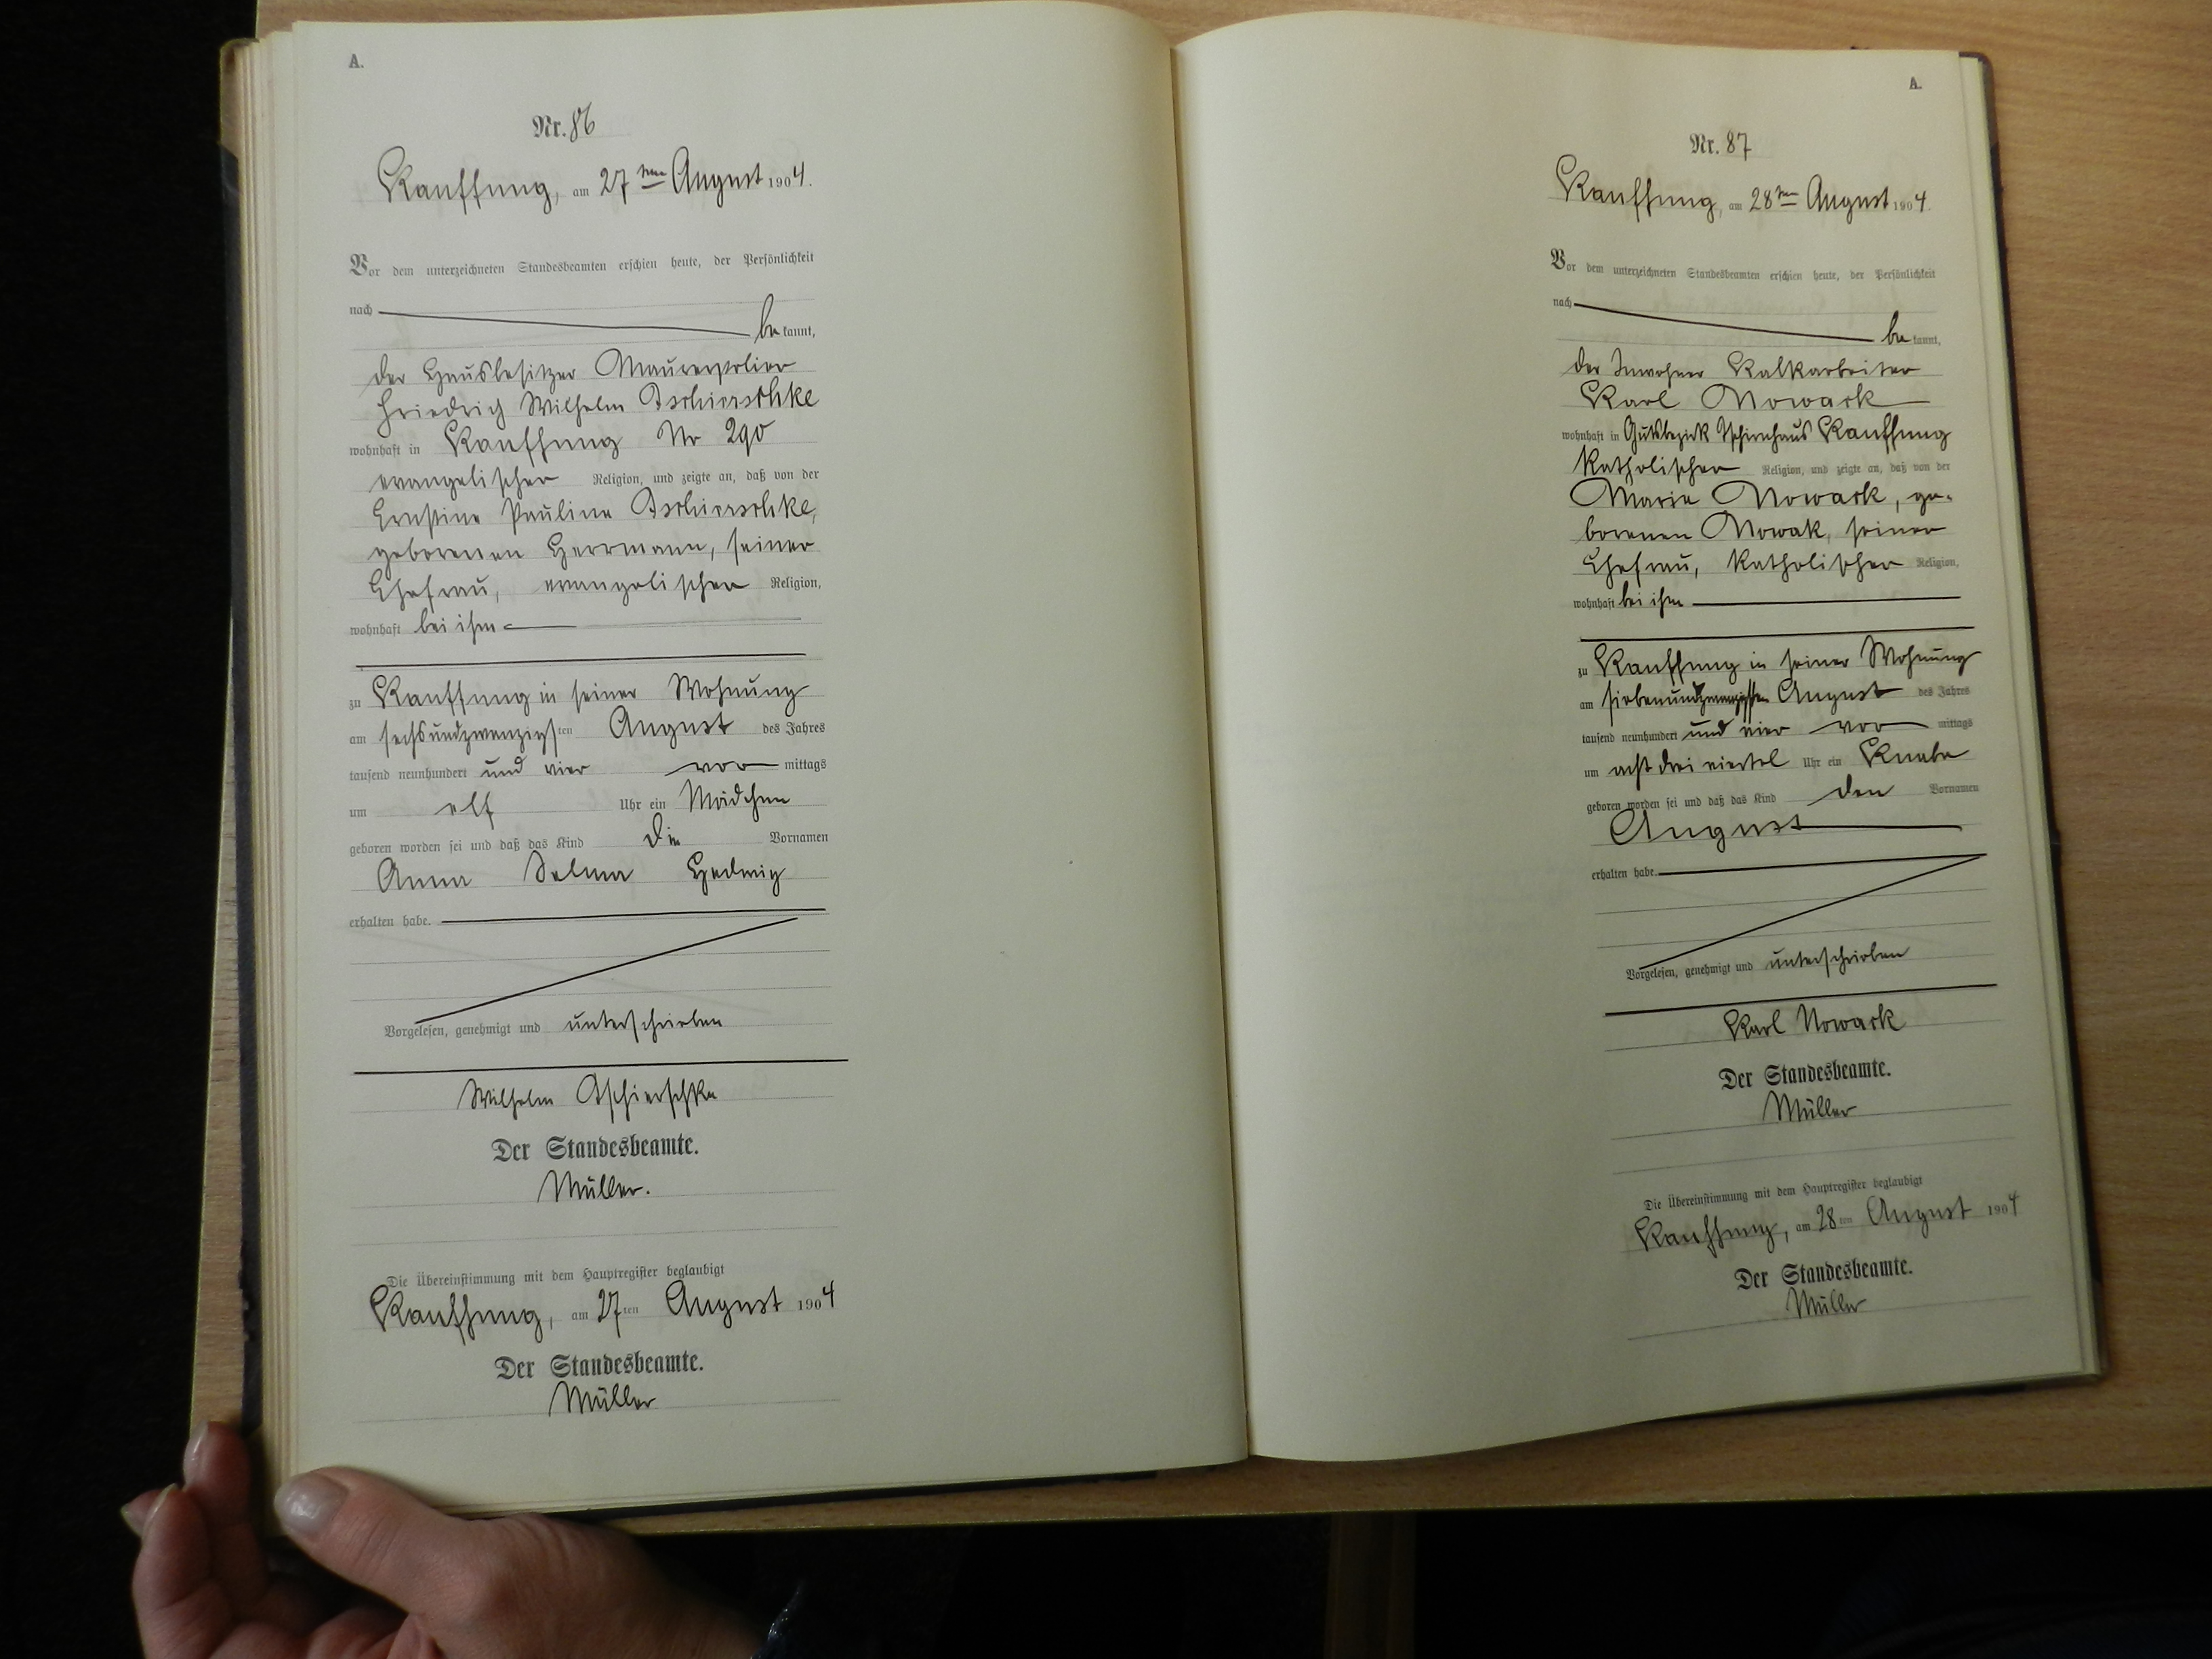 A.
Nr. 86
Kauffung, am 27ten August 1904.
Vor dem unterzeichneten Standesbeamten erschien heute, der Persönlichkeit
nach
be kannt,
der Hausbesitzer Maurerpolier
Friedrich Wilhelm Tschierschke
wohnhaft in Kauffung Nr 290
evangelischer Religion, und zeigte an, daß von der
Ernstine Pauline Tschierschke,
geborenen Herrmann, seiner
Ehefrau, evangelischer Religion,
wohnhaft bei ihm
zu Kauffung in seiner Wohnung
am sechsundzwanzigsten August des Jahres
tausend neunhundert und vier vor mittags
um elf Uhr ein Mädchen
geboren worden sei und daß das Kind die Vornamen
Anna Selma Hedwig
erhalten habe.
Vorgelesen, genehmigt und unterschrieben
Wilhelm Tschierschke
Der Standesbeamte.
Müller.
Die Übereinstimmung mit dem Hauptregister beglaubigt
Kauffung, am 27ten August 1904
Der Standesbeamte.
Müller
A.
Nr. 87
Kauffung, am 28ten August 1904.
Vor dem unterzeichneten Standesbeamten erschien heute, der Persönlichkeit
nach
be kannt,
der Inwohner Kalkarbeiter
Karl Nowack
wohnhaft in Gutsbezirk Tschirnhaus Kauffung
katholischer Religion, und zeigte an, daß von der
Marie Nowack, ge-
borenen Nowak, seiner
Ehefrau, katholischer Religion,
wohnhaft bei ihm
zu Kauffung in seiner Wohnung
am siebenundzwanzigsten August des Jahres
tausend neunhundert und vier vor mittags
um acht drei viertel Uhr ein Knabe
geboren worden sei und daß das Kind den Vornamen
August
erhalten habe.
Vorgelesen, genehmigt und unterschrieben
Karl Nowack
Der Standesbeamte.
Müller
Die Übereinstimmung mit dem Hauptregister beglaubigt
Kauffung, am 28ten August 1904
Der Standesbeamte.
Müller